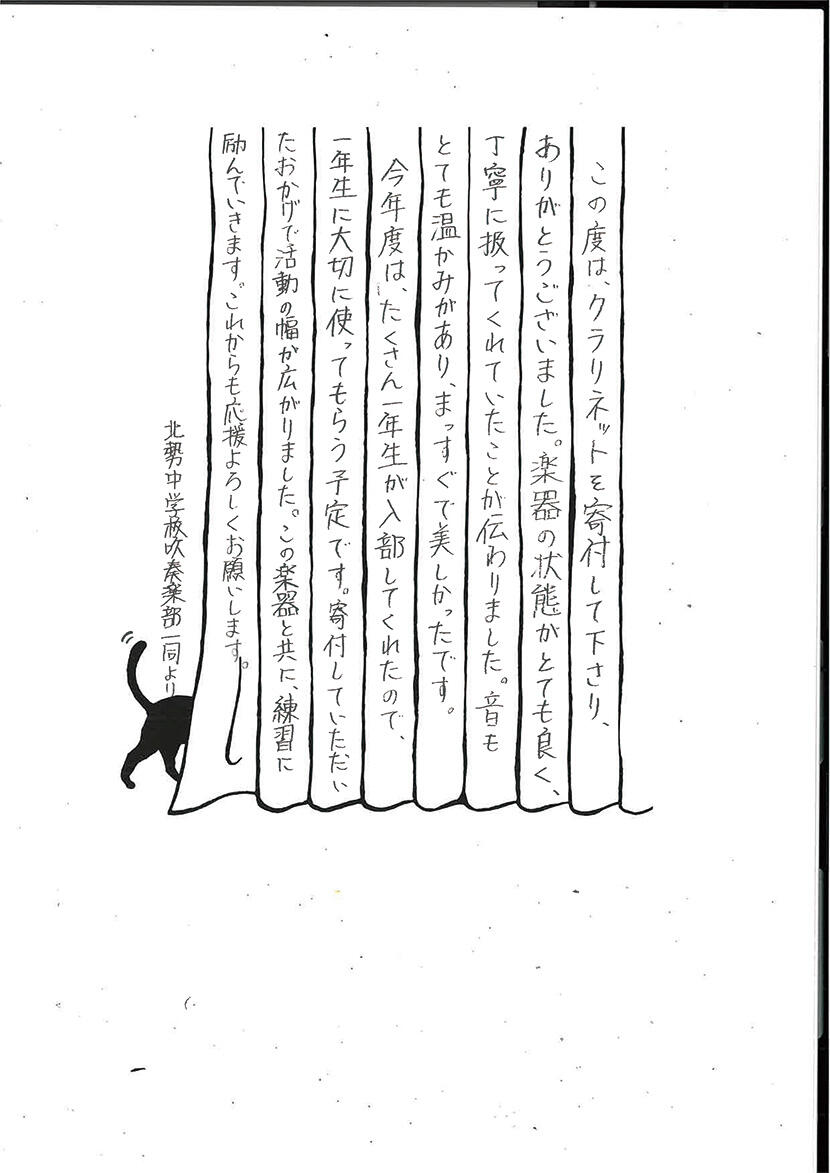 この度は、クラリネットを寄付して下さり、
ありがとうございました。楽器の状態がとても良く、
丁寧に扱ってくれていたことが伝わりました。音も
とても温かみがあり、まっすぐで美しかったです。
今年度は、たくさん一年生が入部してくれたので、
一年生に大切に使ってもらう予定です。寄付していただい
たおかげで活動の幅が広がりました。この楽器と共に、練習に
励んでいきます。これからも応援よろしくお願いします。
北勢中学校吹奏楽部一同より